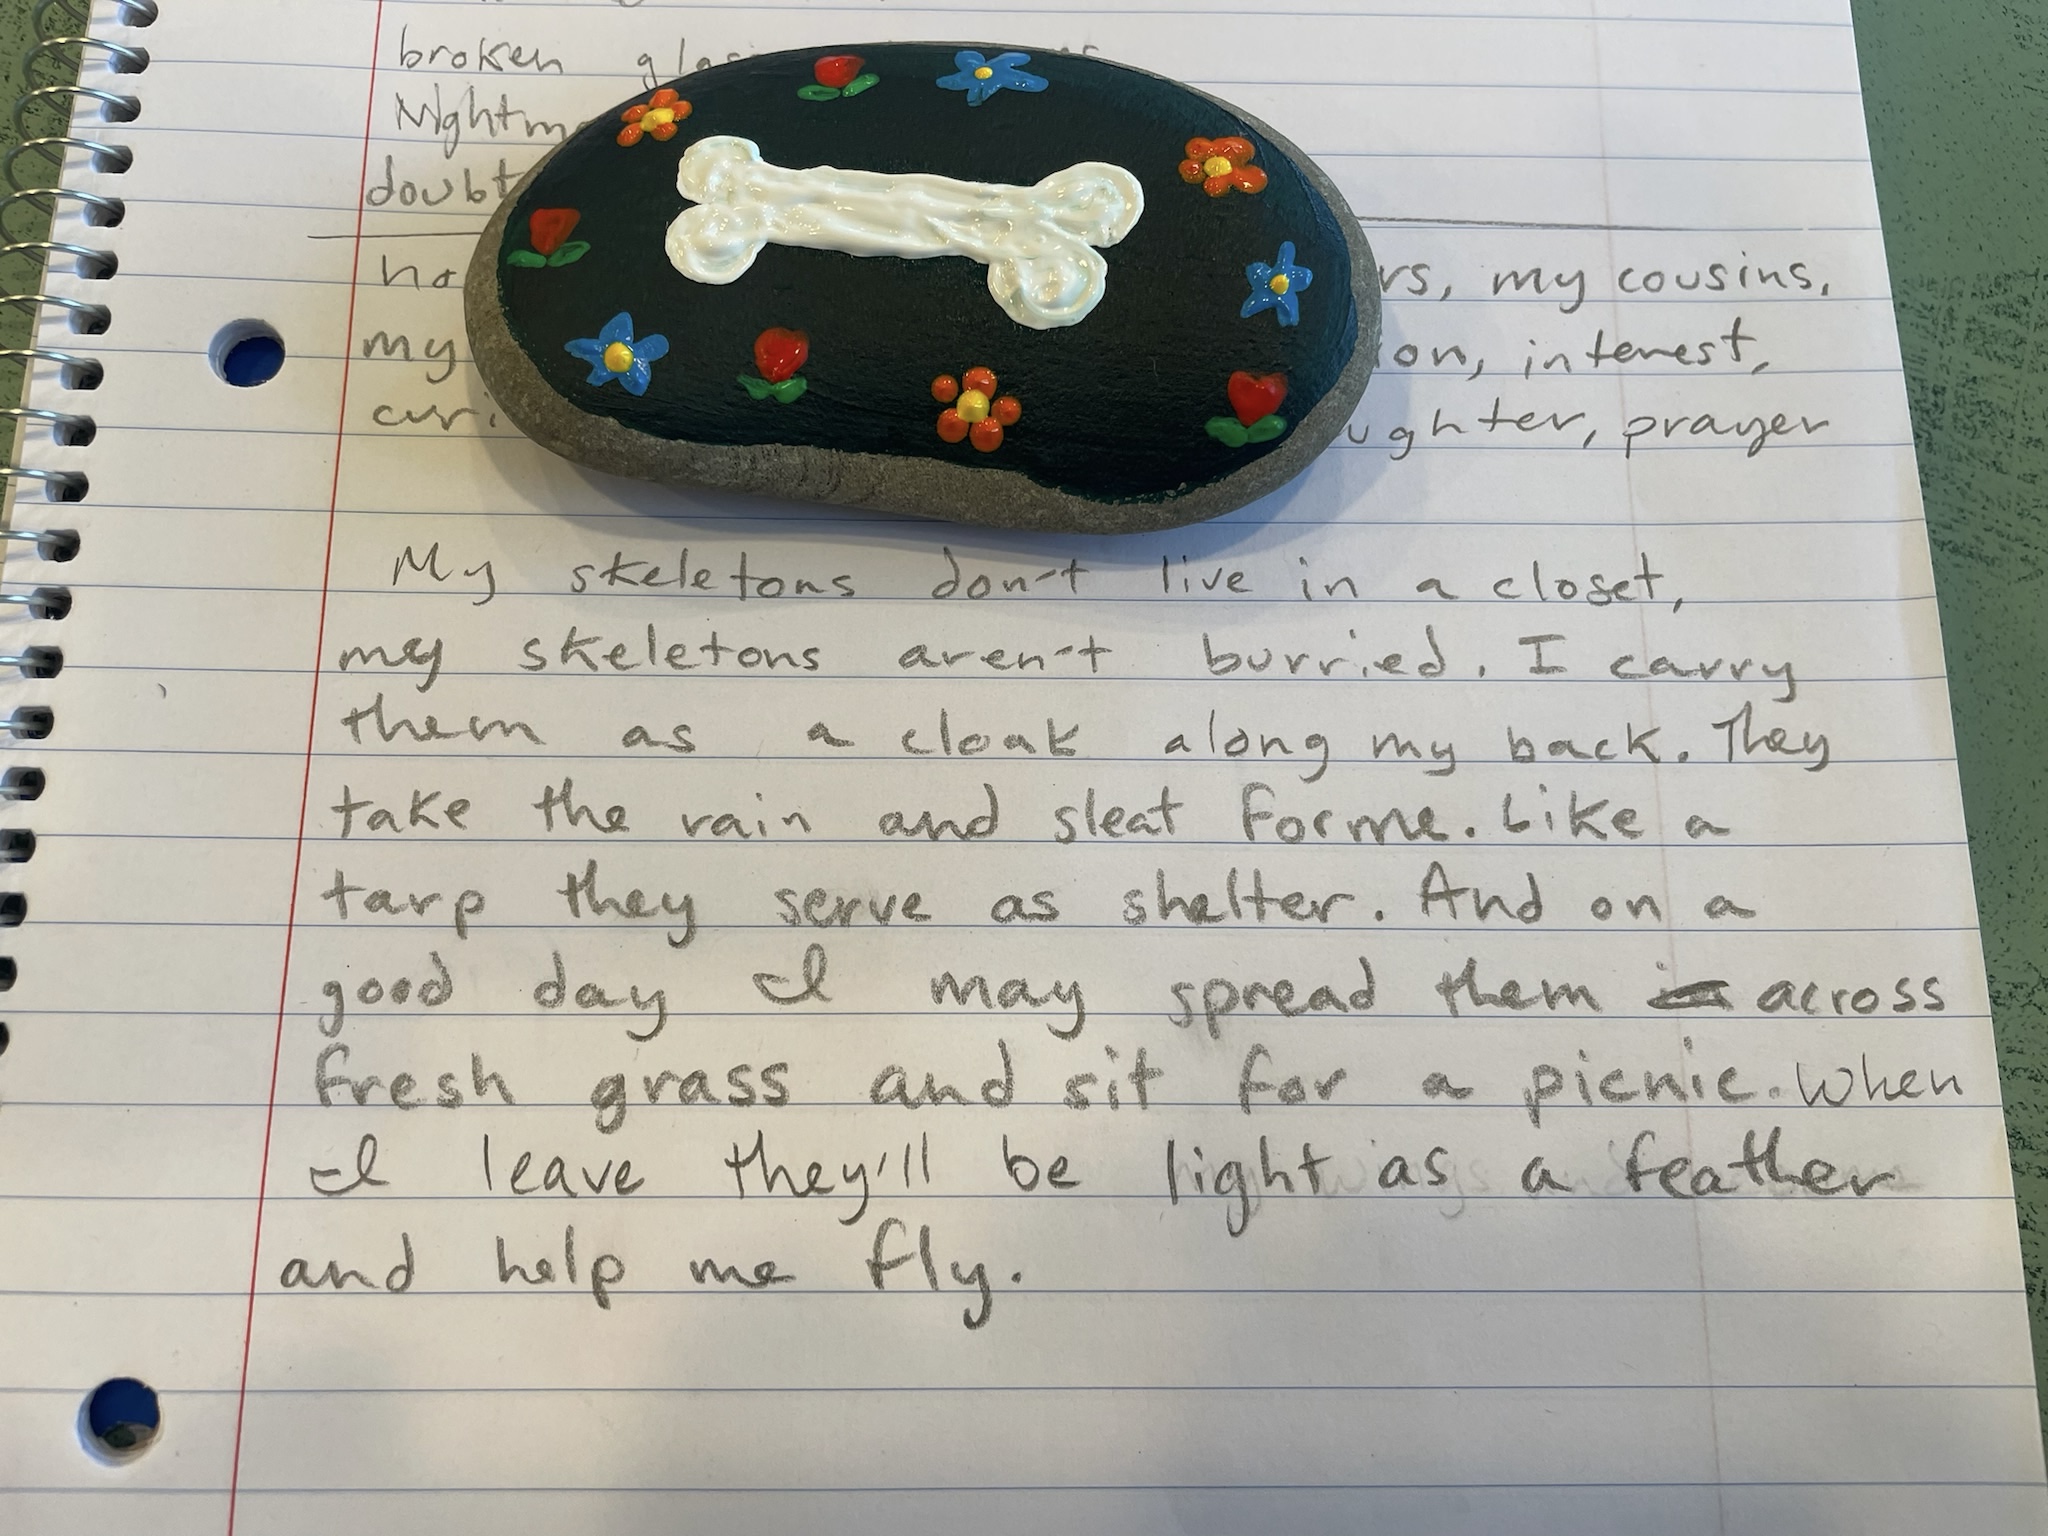 broken
doubt
rs, my cousins,
my interest,
ughter, prayer
My skeletons don't live in a closet,
my skeletons aren't burried. I carry
them as a cloak along my back. They
take the rain and sleat for me. Like a
tarp they serve as shelter. And on a
good day I may spread them across
fresh grass and sit for a picnic. When
I leave they'll be light as a feather
and help me fly.